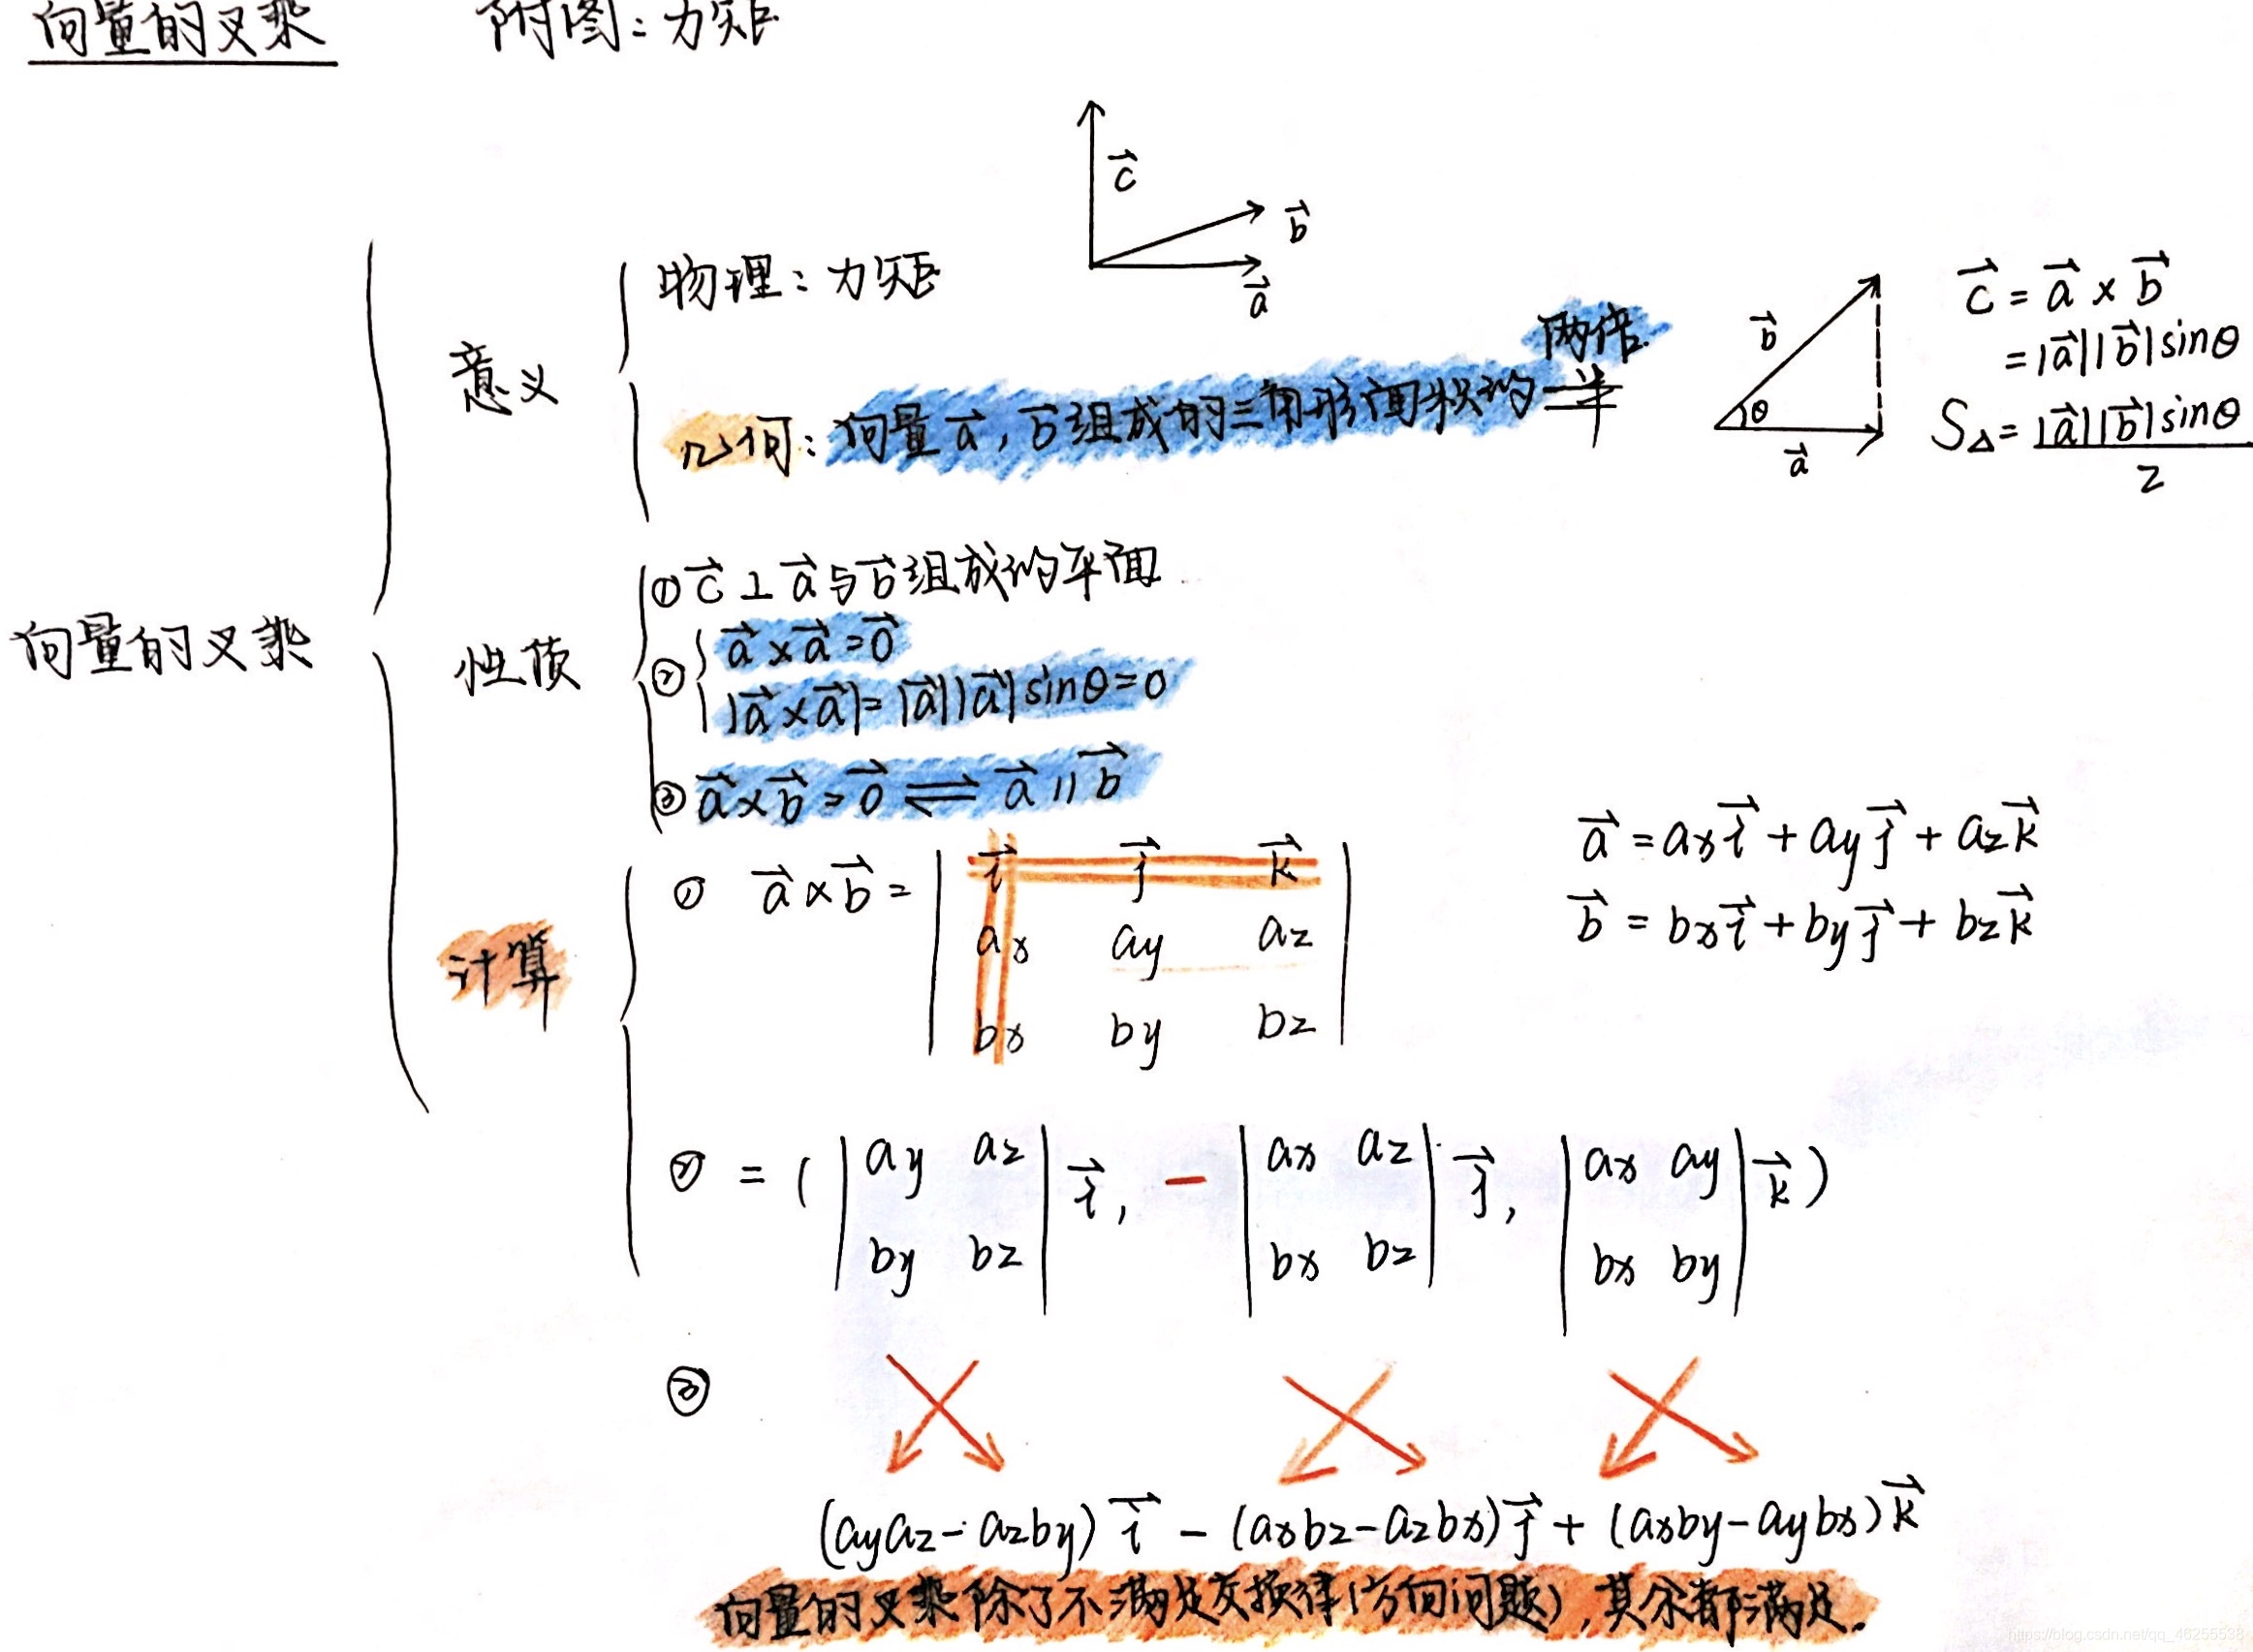 向量的叉乘 附图：力矩
c⃗
b⃗
a⃗
物理：力矩
意义
两倍
几何：向量a⃗，b⃗组成的三角形面积的一半
b⃗
θ
a⃗
c⃗ = a⃗ × b⃗
= |a⃗||b⃗|sinθ
S△ = |a⃗||b⃗|sinθ / 2
向量的叉乘
性质
① c⃗ ⊥ a⃗与b⃗组成的平面
② a⃗ × a⃗ = 0⃗
|a⃗ × a⃗| = |a⃗||a⃗|sinθ = 0
③ a⃗ × b⃗ = 0⃗ ⇌ a⃗ // b⃗
计算
① a⃗ × b⃗ = | i⃗ j⃗ k⃗ |
ax ay az
bx by bz
a⃗ = axi⃗ + ayj⃗ + azk⃗
b⃗ = bxi⃗ + byj⃗ + bzk⃗
② = ( | ay az | i⃗, − | ax az | j⃗, | ax ay | k⃗ )
by bz bx bz bx by
③
(ayaz − azby) i⃗ − (axbz − azbx) j⃗ + (axby − aybx) k⃗
向量的叉乘除了不满足交换律(方向问题)，其余都满足.
https://blog.csdn.net/qq_46255538